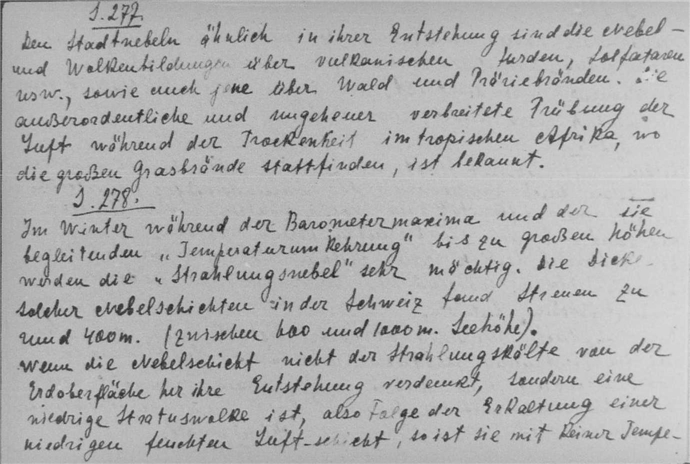 S. 277
Den Stadtnebeln ähnlich in ihrer Entstehung sind die Nebel-
und Wolkenbildungen über vulkanischen Solfataren
usw., sowie auch jene über Wald und Präriebränden. Die
außerordentliche und ungeheuer verbreitete Trübung der
Luft während der Trockenheit im tropischen Afrika, wo
die großen Grasbrände stattfinden, ist bekannt.
S. 278.
Im Winter während der Barometermaxima und der sie
begleitenden „Temperaturumkehrung" bis zu großen Höhen
werden die „Strahlungsnebel" sehr mächtig. Die Dicke
solcher Nebelschichten in der Schweiz fand Streuen zu
rund 400m. (zwischen 600 und 1000m. Seehöhe).
Wenn die Nebelschicht nicht der Strahlungskälte von der
Erdoberfläche her ihre Entstehung verdankt, sondern eine
niedrige Stratuswolke ist, also Folge der Erkaltung einer
niedrigen feuchten Luft-schicht, so ist sie mit keiner Tempe-